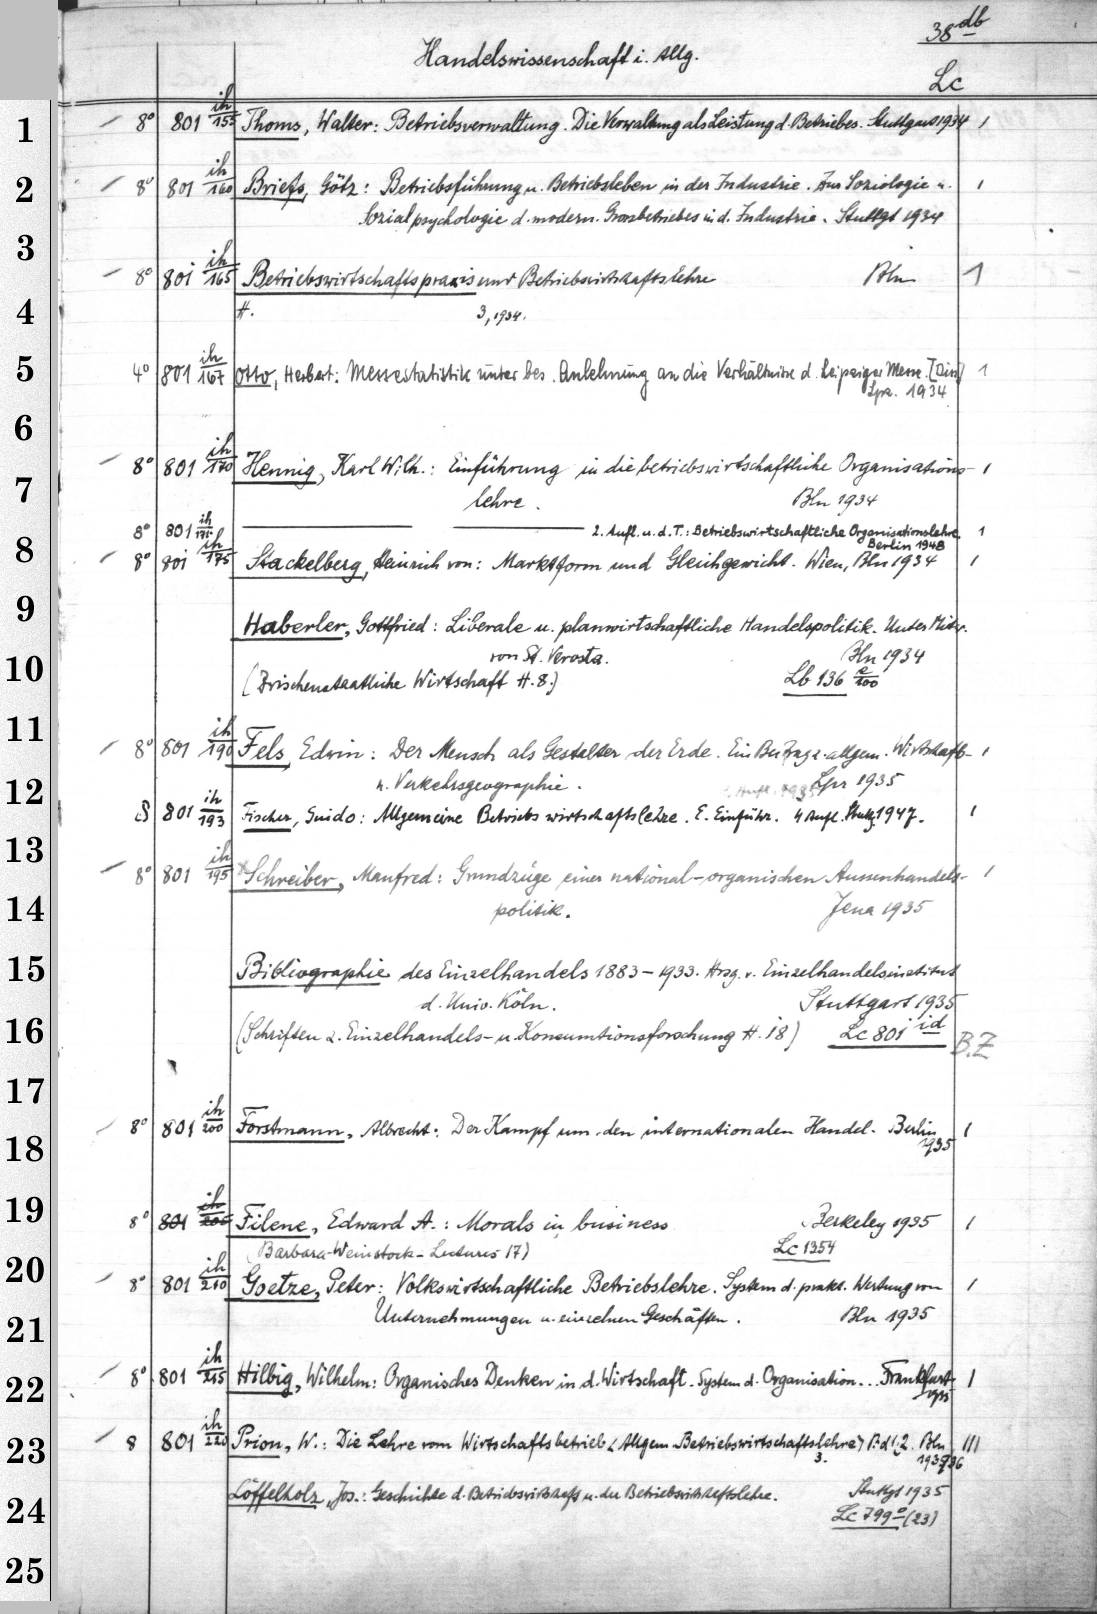 38 db
Handelswissenschaft i. Allg.
Lc
1
8° 801 ih/155 Thoms, Walter: Betriebsverwaltung. Die Verwaltung als Leistung d. Betriebes. Stuttgart 1934 1
2
8° 801 ih/160 Briefs, Götz: Betriebsführung u. Betriebsleben in der Industrie. Zur Soziologie u. 1
Sozialpsychologie d. modern. Grossbetriebes in d. Industrie. Stuttgt 1934
3
8° 801 ih/165 Betriebswirtschaftspraxis und Betriebswirtschaftslehre Bln 1
4
H. 3, 1934.
5
4° 801 ih/167 Otto, Herbert: Messestatistik unter bes. Anlehnung an die Verhältnisse d. Leipziger Messe. [Diss] 1
Lpz. 1934
6
8° 801 ih/170 Hennig, Karl Wilh.: Einführung in die betriebswirtschaftliche Organisations- 1
7
lehre. Bln 1934
8° 801 ih/171 2. Aufl. u. d. T.: Betriebswirtschaftliche Organisationslehre. 1
Berlin 1948
8
8° 801 ih/175 Stackelberg, Heinrich von: Marktform und Gleichgewicht. Wien, Bln 1934 1
9
Haberler, Gottfried: Liberale u. planwirtschaftliche Handelspolitik. Unter Mitw.
von St. Verosta. Bln 1934
10
(Zwischenstaatliche Wirtschaft H. 8.) Lb 136 e/100
11
8° 801 ih/190 Fels, Edwin: Der Mensch als Gestalter der Erde. Ein Beitrag z. allgem. Wirtschafts- 1
u. Verkehrsgeographie. Lpz 1935
12
8 801 ih/193 Fischer, Guido: Allgemeine Betriebswirtschaftslehre. E. Einführ. 4 Aufl. Stuttg. 1947. 1
13
8° 801 ih/195 Schreiber, Manfred: Grundzüge einer national-organischen Aussenhandels- 1
14
politik. Jena 1935
15
Bibliographie des Einzelhandels 1883-1933. Hrsg. v. Einzelhandelsinstitut
d. Univ. Köln. Stuttgart 1935
16
(Schriften z. Einzelhandels- u. Konsumtionsforschung H. 18) Lc 801 id
B.Z
17
8° 801 ih/200 Forstmann, Albrecht: Der Kampf um den internationalen Handel. Berlin 1
1935
18
19
8° 801 ih/205 Filene, Edward A.: Morals in business Berkeley 1935 1
(Barbara-Weinstock-Lectures 17) Lc 1354
20
8° 801 ih/210 Goetze, Peter: Volkswirtschaftliche Betriebslehre. System d. prakt. Wertung von 1
21
Unternehmungen u. einzelnen Geschäften. Bln 1935
22
8° 801 ih/215 Hilbig, Wilhelm: Organisches Denken in d. Wirtschaft. System d. Organisation... Frankfurt 1
23
8 801 ih/220 Prion, W.: Die Lehre vom Wirtschaftsbetrieb (Allgem. Betriebswirtschaftslehre) Bd 1. 2. Bln III
3. 1935 36
24
Löffelholz, Jos.: Geschichte d. Betriebswirtschaft u. der Betriebswirtschaftslehre. Stuttgt 1935
Lc 799 o (23)
25